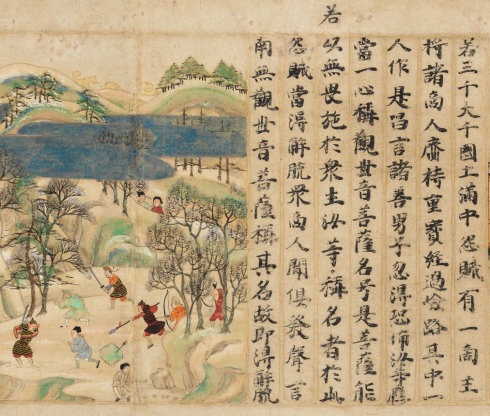 若三千大千國土滿中怨賊有一商主
將諸商人齎持重寶經過嶮路其中一
人作是唱言諸善男子勿得恐怖汝等應
當一心稱觀世音菩薩名号是菩薩能
若
以無畏施於衆生汝等稱名者於此
怨賊當得解脫衆商人聞俱發聲言
南無觀世音菩薩稱其名故即得解脫